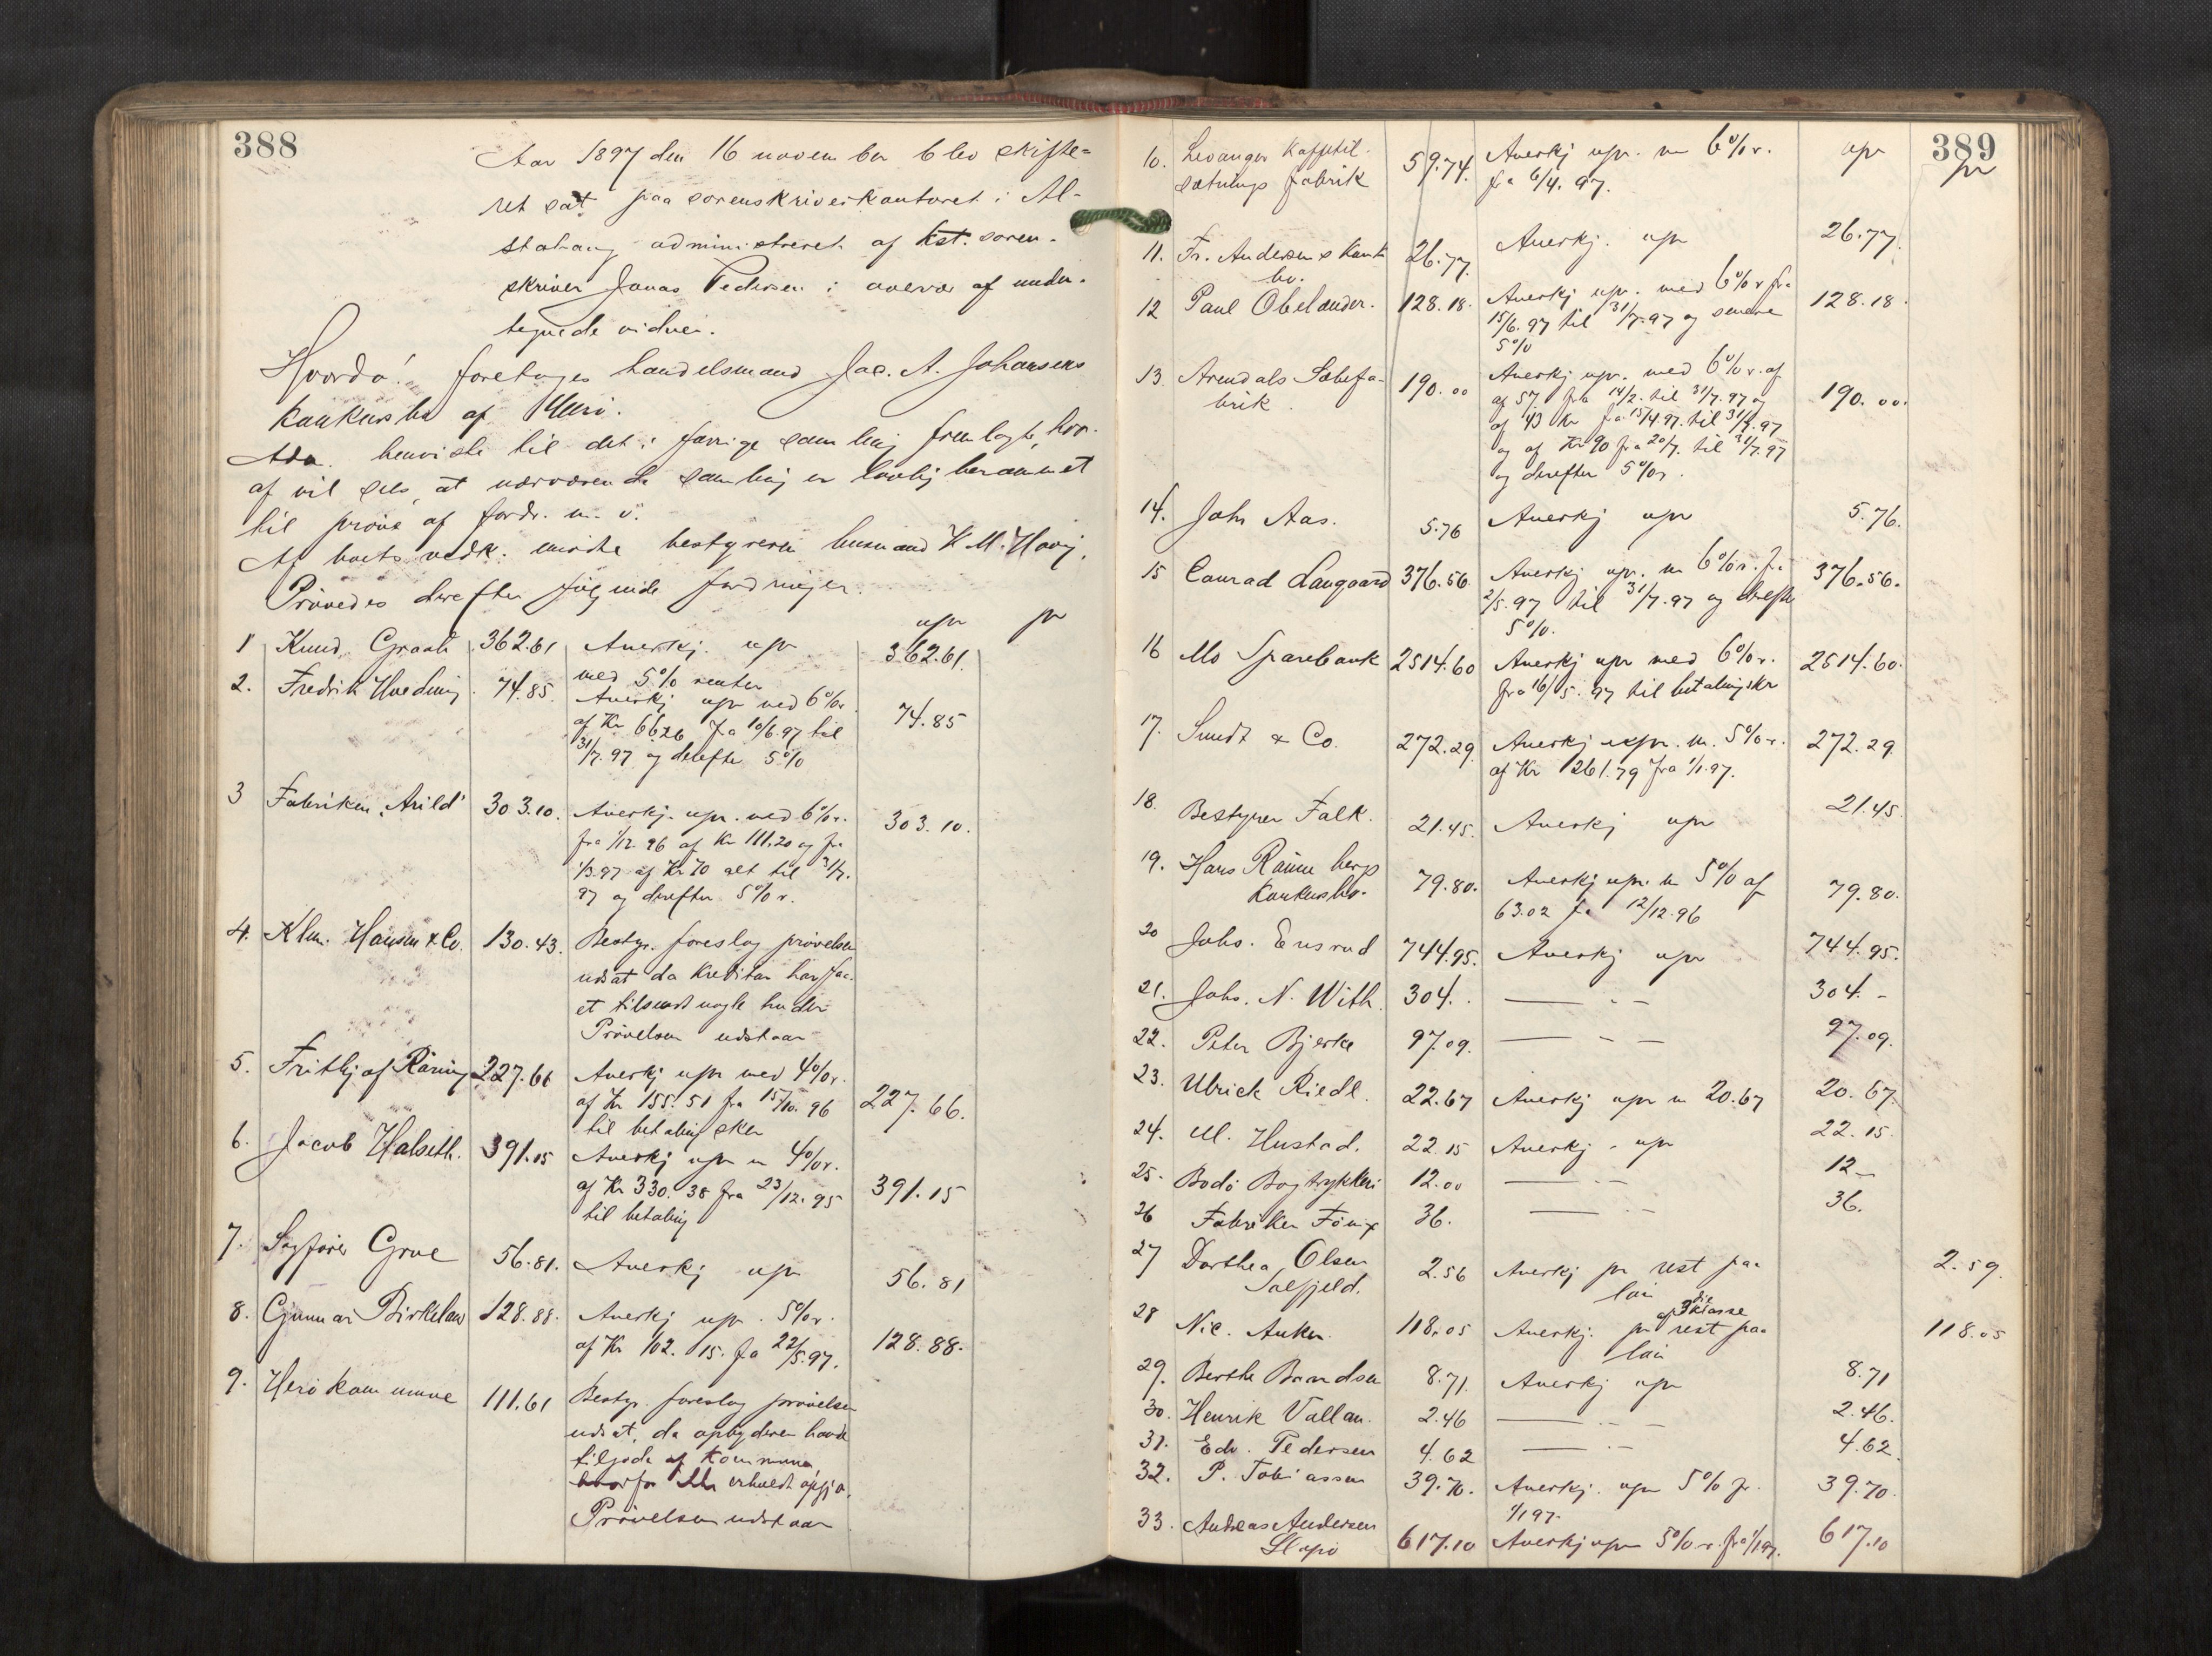 388
Aar 1897 den 16 november blev skifte=
ret sat paa sorenskriverkontoret i Al-
stahaug administreret af kst. soren-
skriver Jonas Pedersen i overvær af under-
tegnede vidner.
Hvorda! foretoges handelsmand Jac. A. Johansens
konkursbo af Herø.
Adm. henviste til det i forrige samling fremlagte, hvor-
af vil sees, at nærværende samling er lovlig berammet
til prøve af fordr. m. v.
Af boets vedk. mødte bestyreren husmand K. M. Havig.
Prøvedes derefter følgende fordringer.
upr pr
1 Knud Graah 362.61 Anerkj. upr 362.61
med 5% renter
2. Fredrik Hveding 74.85 Anerkj upr med 6% r.
af Kr 66.26 fra 10/6 97 til 74.85
31/7.97 og derefter 5%
3 Fabriken "Arild" 303.10. Anerkj. upr. med 6% r. 303.10.
fra 1/12 96 af Kr 111.20 og fra
1/3.97 af Kr 70 alt til 31/7.
97 og derefter 5% r.
4. Klm. Hansen & Co. 130.43. Bestyr. foreslog prøvelsen
udsat da kreditor har faa-
et tilsendt nogle huder
Prøvelsen udstaar
5. Frithjof Räring 227.66 Anerkj upr med 4% r.
af Kr 155.51 fra 15/10. 96 227.66.
til betaling sker
6. Jacob Halseth. 391.15 Anerkj upr m 4% r.
af Kr 330.38 fra 23/12.95 391.15
til betaling
7. Sagfører Grue 56.81. Anerkj upr 56.81
8. Gunnar Birkeland 128.88. Anerkj upr. 5% r.
af Kr 102.15. fra 22/5.97. 128.88.
9. Herø kommune 111.61 Bestyr. foreslog prøvelsen
udsat, da opbyderen havde
tilgode af kommunen
hvorfor erholdt opgjør.
Prøvelsen udstaar
389
upr pr
10. Levanger Kaffetil-
sætnings fabrik 59.74. Anerkj upr. m 6% r.
fra 6/4. 97.
11. Fr. Andersens konk
bo. 26.77. Anerkj. upr 26.77.
12 Paul Obelander. 128.18. Anerkj upr. med 6% r fra 128.18.
15/6.97 til 31/7.97 og senere
5%
13. Arendals Sæbefa-
brik. 190.00 Anerkj upr. med 6% r. af
af 57. fra 14/2. til 31/7.97 og 190.00.
af 43 kr fra 15/4 97. til 31/7.97
og af Kr 90 fra 20/7. til 31/7.97
og derefter 5% r.
14. John Aas. 5.76 Anerkj upr 5.76.
15 Conrad Langaard 376.56. Anerkj upr. m 6% r. fra 376.56.
2/5.97 til 31/7.97 og derefter
5%.
16 Mo Sparebank 2514.60 Anerkj upr med 6% r. 2514.60.
fra 16/5. 97 til betaling sker
17. Sundt & Co. 272.29. Anerkj upr. m. 5% r. 272.29
af Kr 261.79 fra 1/1.97.
18. Bestyrer Falk. 21.45. Anerkj upr 21.45
19. Hans Rønne bergs
Konkursbo. 79.80. Anerkj upr. m 5% af 79.80.
63.02 fra 12/12.96
20 Johs. Ensrud 744.95. Anerkj upr 744.95.
21. Johs. N. With. 304. — „ — 304.-
22. Peter Bjerke 97.09. — „ — 97.09.
23. Ulrick Riedl. 22.67 Anerkj upr m 20.67 20.67.
24. M. Hustad. 22.15 Anerkj - upr 22.15.
25. Bodø Bogtrykkeri 12.00 — „ — 12 —
26 Fabriken Fønix 36. — „ — 36.
27 Dorthea Olsen
Salfjeld. 2.56 Anerkj pr rest paa 2.59.
løn
28 Nic. Anker. 118.05 Anerkj. pr rest paa 118.05
af 3die klasse
løn
29. Berthe Brandsen 8.71. Anerkj upr 8.71
30. Henrik Vallan. 2.46 — „ — 2.46.
31. Edv. Pedersen 4.62 — „ — 4.62.
32. P. Tobiassen 39.70. Anerkj. upr 5% fr. 39.70.
1/1 97.
33. Andreas Andersen
Slapø 617.10 Anerkj upr 5% r. fra 1/1 97. 617.10